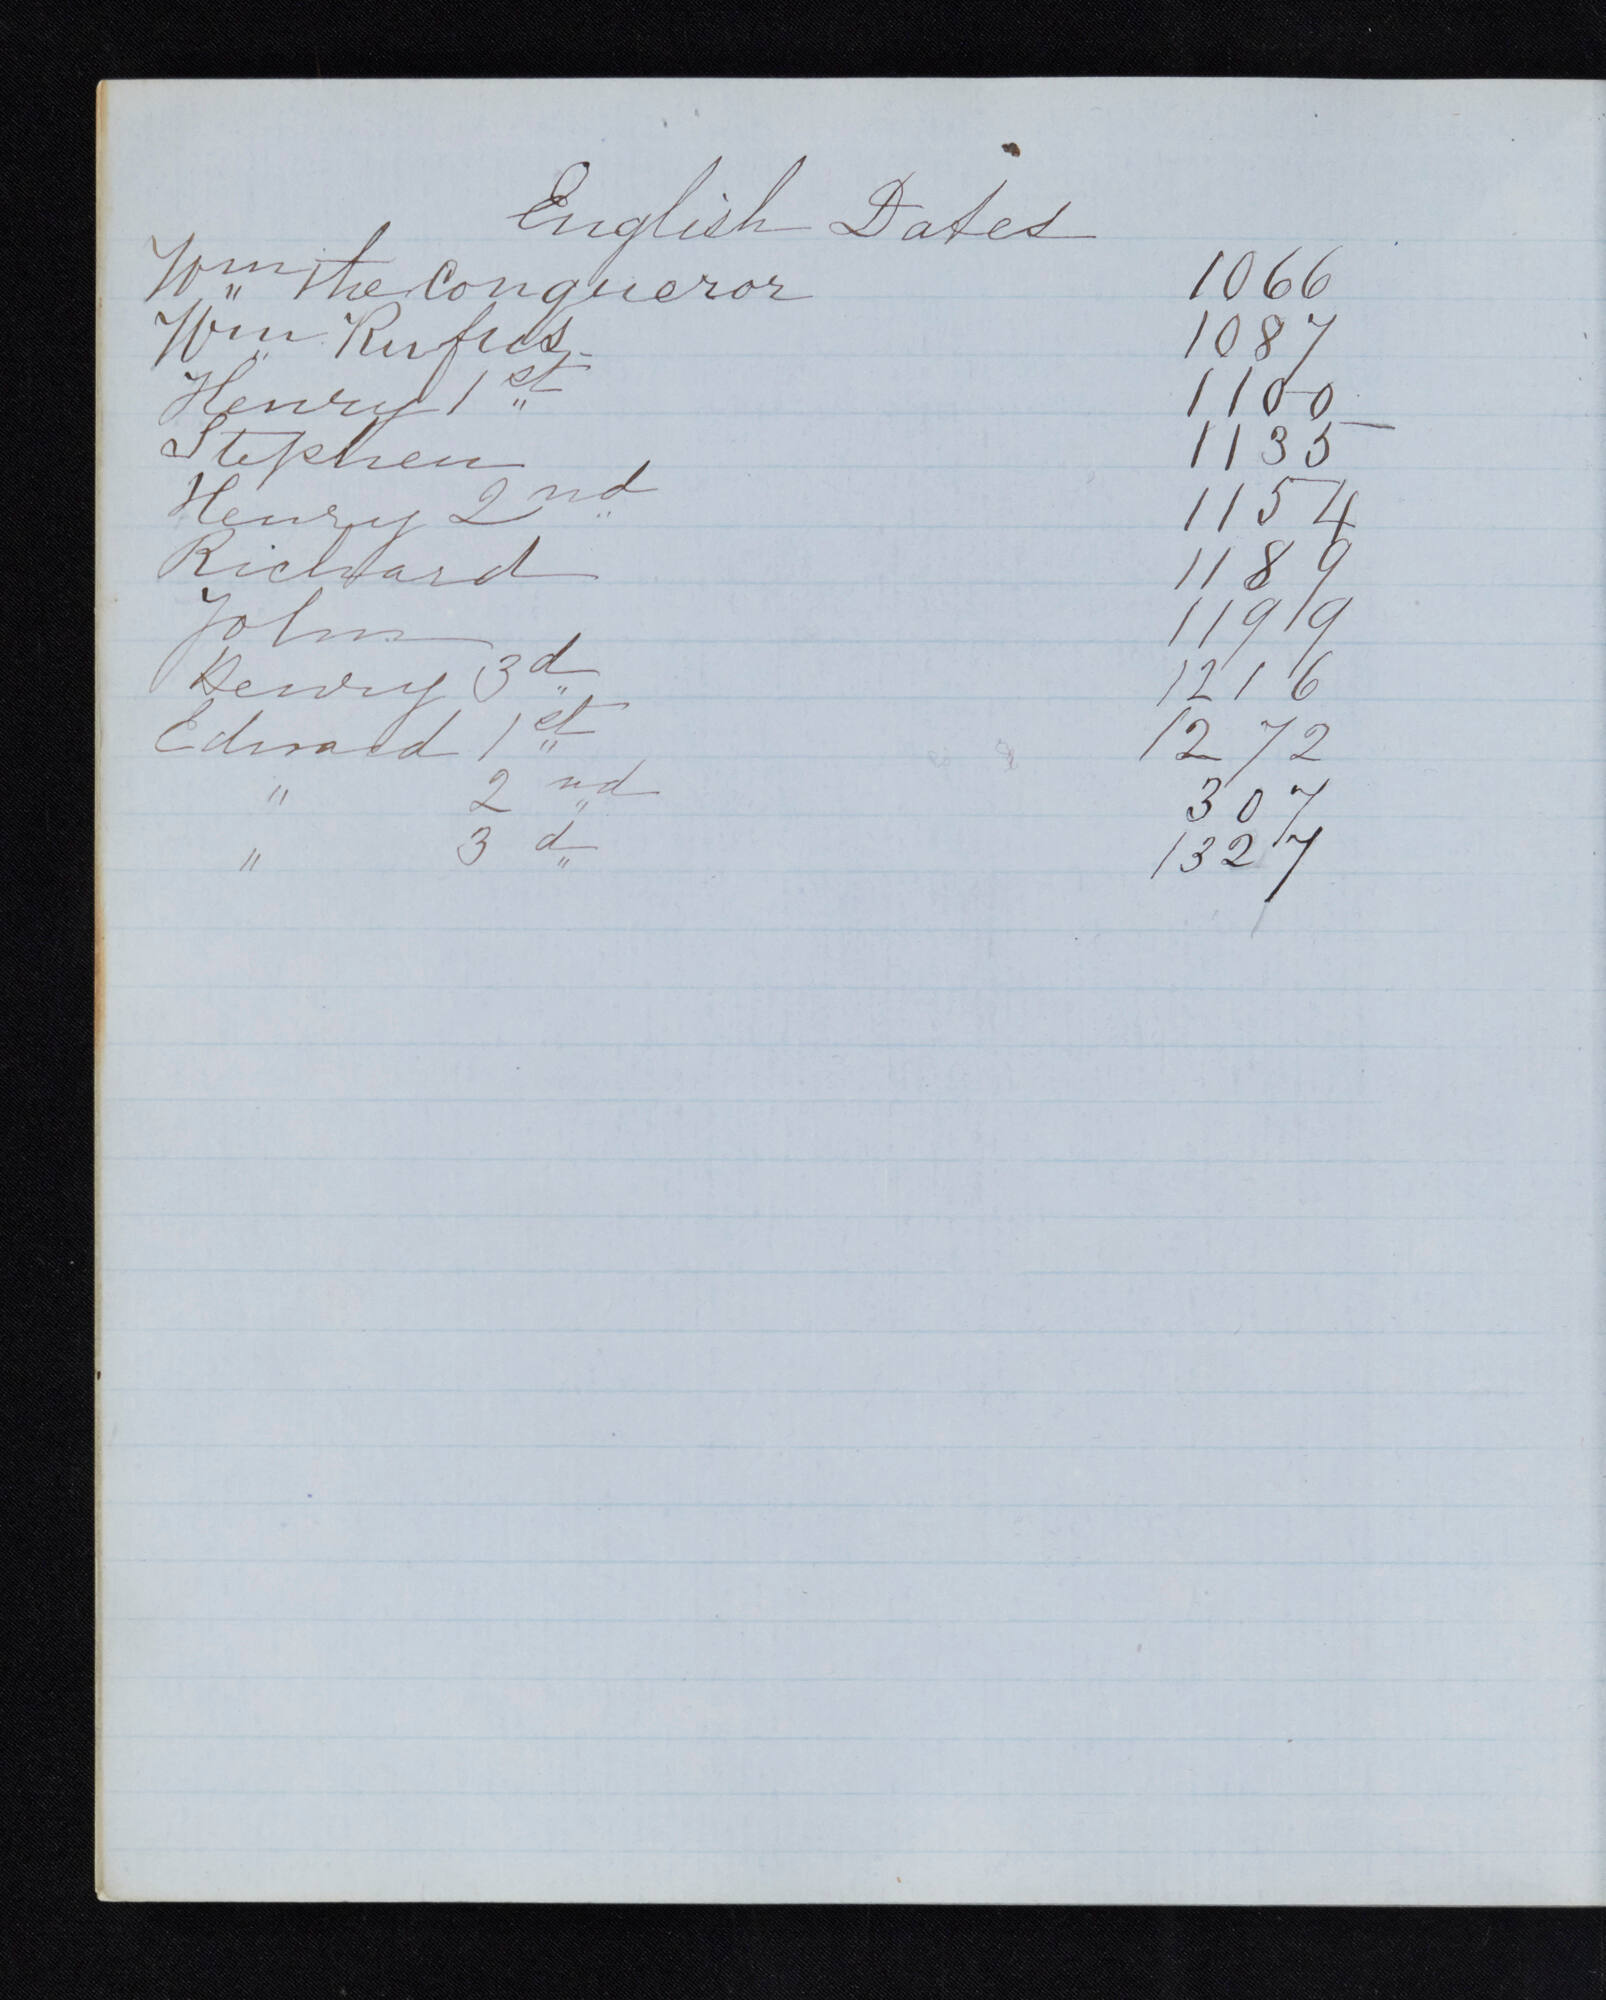 English Dates
Wm the Conqueror 1066
Wm Rufus 1087
Henry 1st 1100
Stephen 1135
Henry 2nd 1154
Richard 1189
John 1199
Henry 3d 1216
Edward 1st 1272
" 2nd 307
" 3d 1327